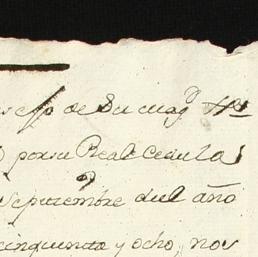 de Su Mag.d
por su Real Cedula
Septiembre del año
cinquenta y ocho, nos